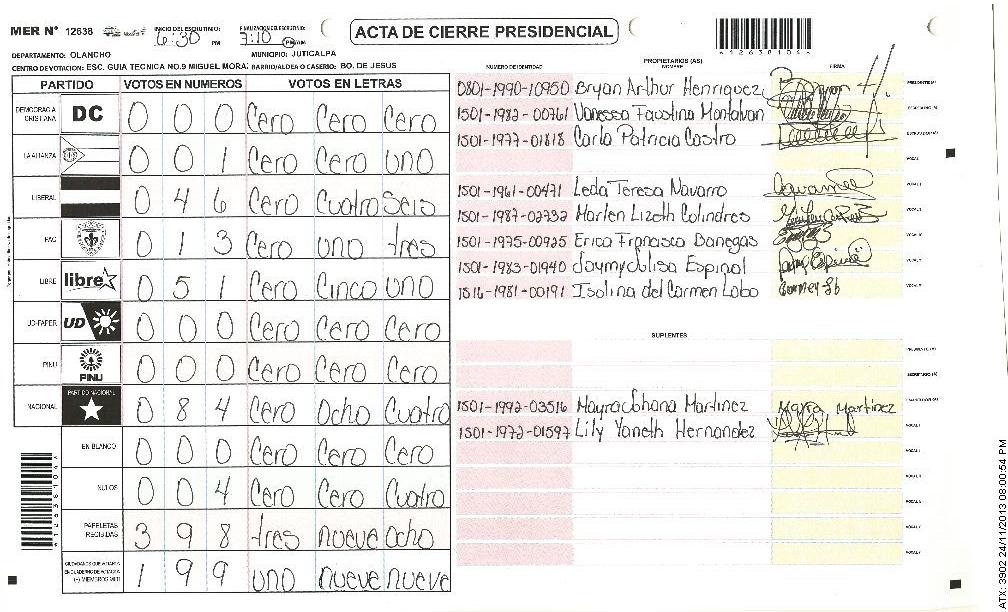 MER N° 12638 INICIO DEL ESCRUTINIO: 6:30 PM FINALIZACION DEL ESCRUTINIO: 7:10 PM ACTA DE CIERRE PRESIDENCIAL
DEPARTAMENTO: OLANCHO MUNICIPIO: JUTICALPA
CENTRO DE VOTACION: ESC. GUIA TECNICA NO.9 MIGUEL MORAZ BARRIO/ALDEA O CASERIO: BO. DE JESUS
PARTIDO VOTOS EN NUMEROS VOTOS EN LETRAS
DEMOCRACIA CRISTIANA DC 0 0 0 Cero Cero Cero
LA ALIANZA 0 0 1 Cero Cero uno
LIBERAL 0 4 6 Cero Cuatro Seis
PAC 0 1 3 Cero uno tres
LIBRE libre 0 5 1 Cero Cinco uno
UD-FAPER UD 0 0 0 Cero Cero Cero
PINU PINU 0 0 0 Cero Cero Cero
NACIONAL PARTIDO NACIONAL 0 8 4 Cero Ocho Cuatro
EN BLANCO 0 0 0 Cero Cero Cero
NULOS 0 0 4 Cero Cero Cuatro
PAPELETAS RECIBIDAS 3 9 8 tres nueve Ocho
1 9 9 uno nueve nueve
PROPIETARIOS (AS)
NUMERO DE IDENTIDAD NOMBRE FIRMA
0801-1990-10950 Bryan Arthur Henriquez
1501-1982-00761 Vanessa Faustina Montalvan
1501-1977-01818 Carla Patricia Castro
1501-1961-00471 Leda Teresa Navarro
1501-1987-02732 Marlen Lizeth Colindres
1501-1975-00925 Erica Francisco Banegas
1501-1983-01940 Jaymy Julisa Espinal
1516-1981-00191 Isolina del Carmen Lobo
SUPLENTES
1501-1992-03516 Mayra Johana Martinez Mayra Martinez
1501-1972-01597 Lily Yaneth Hernandez
4126381084
ATX: 3902 24/11/2013 08:00:54 PM